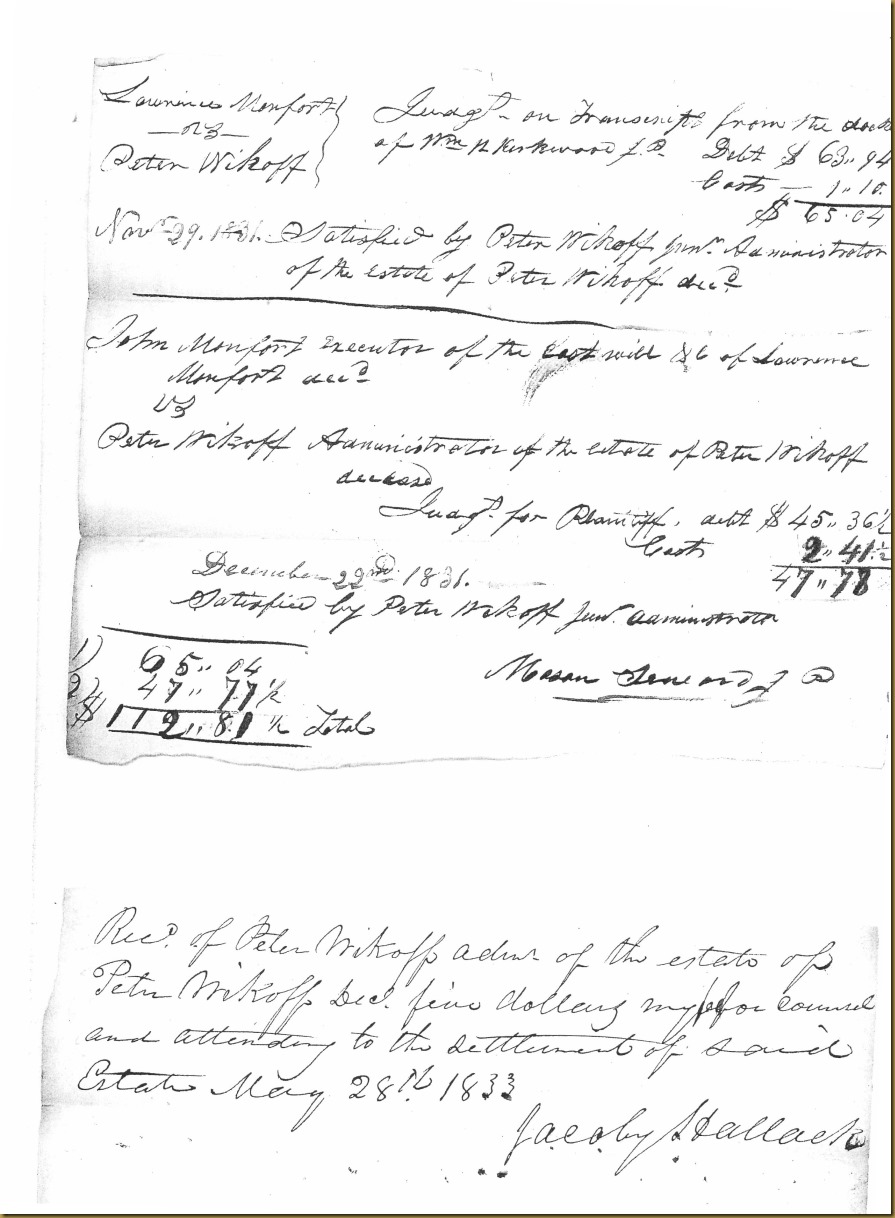 Lawrence Monfort
vs
Peter Wikoff
Judgt. on Transcript from the dock
of Wm H Kirkwood J. P. Debt $ 63.. 94
Costs — 1.. 10
$ 65.04
Novr. 29. 1831. Satisfied by Peter Wikoff Junr. Administrator
of the estate of Peter Wikoff decd.
John Monfort executor of the last will &c of Lawrence
Monfort decd
vs
Peter Wikoff Administrator of the estate of Peter Wikoff
deceased
Judgt. for Plaintiff. debt $ 45.. 36½
Costs 2.. 41½
47.. 78
December 22nd. 1831.
Satisfied by Peter Wikoff Junr. administrator
Mason J P
1) 65.. 04
2) 47.. 77½
$ 112.. 81½ Total
Recd. of Peter Wikoff admr. of the estate of
Peter Wikoff Decd. five dollars my for counsel
and attending to the settlement of said
Estate May 28th 1833
Jacoby Hallack